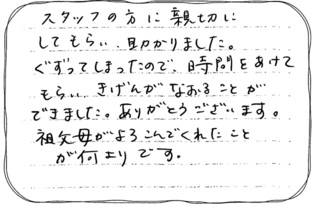 スタッフの方に親切に
してもらい、助かりました。
ぐずってしまったので、時間をあけて
もらい、きげんがなおることが
できました。ありがとうございます。
祖父母がよろこんでくれたこと
が何よりです。